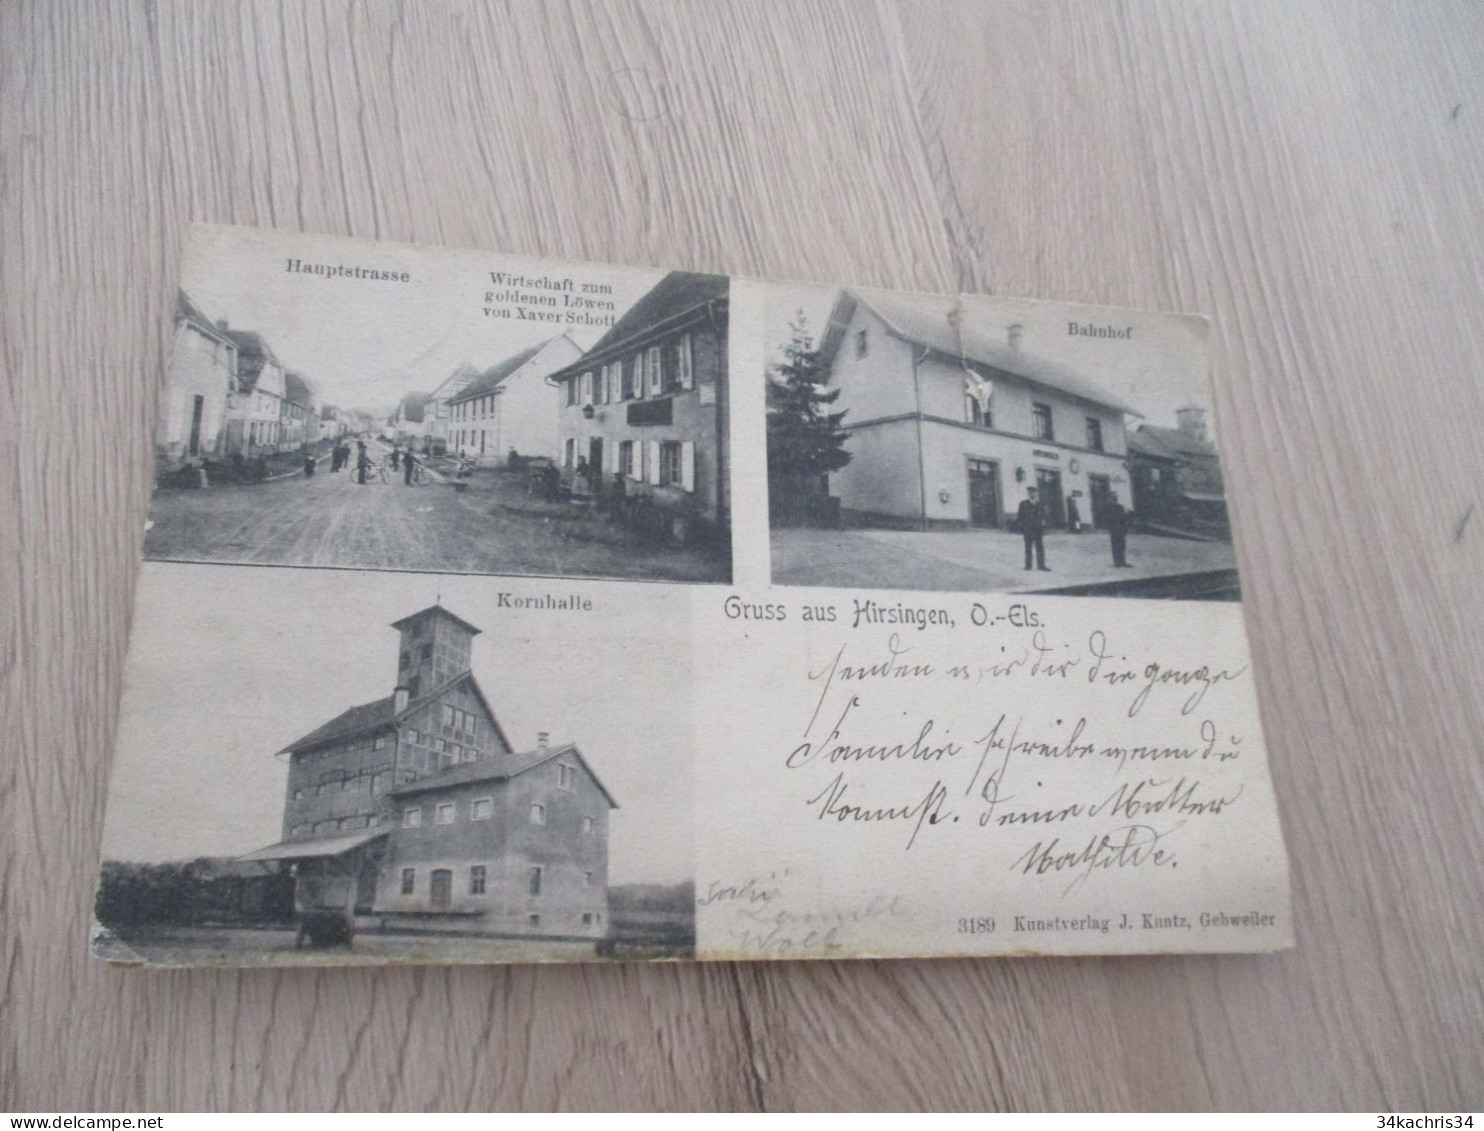 Hauptstrasse
Wirtschaft zum
goldenen Löwen
von Xaver Schott
Bahnhof
HIRSINGEN
Kornhalle
Gruss aus Hirsingen, O.-Els.
senden wir dir die ganze
Familie schreibe wenn du
kommst. deine Mutter
Mathilde.
Wolf
3189 Kunstverlag J. Kuntz, Gebweiler
34kachris34
delcampe.net